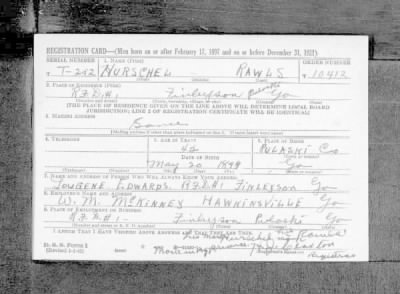 REGISTRATION CARD—(Men born on or after February 17, 1897 and on or before December 31, 1921)
SERIAL NUMBER 1. NAME (Print) ORDER NUMBER
T-242 HURSCHEL RAWLS 10412
(First) (Middle) (Last)
2. PLACE OF RESIDENCE (Print)
R.F.D.#1 Finleyson Pulaski Ga
[THE PLACE OF RESIDENCE GIVEN ON THE LINE ABOVE WILL DETERMINE LOCAL BOARD
JURISDICTION; LINE 2 OF REGISTRATION CERTIFICATE WILL BE IDENTICAL]
3. MAILING ADDRESS
Same
[Mailing address if other than place indicated on line 2. If same insert word same]
4. TELEPHONE 5. AGE IN YEARS 6. PLACE OF BIRTH
42 PULASKI Co
DATE OF BIRTH
May 20 1899 Ga
7. NAME AND ADDRESS OF PERSON WHO WILL ALWAYS KNOW YOUR ADDRESS
EDWARDS. R.F.D.#1 FINLEYSON Ga
8. EMPLOYER'S NAME AND ADDRESS
W. M. McKINNEY HAWKINSVILLE Ga
9. PLACE OF EMPLOYMENT OR BUSINESS
R.F.D.#1 - Finleyson Pulaski Ga
I AFFIRM THAT I HAVE VERIFIED ABOVE ANSWERS AND THAT THEY ARE TRUE.
D. S. S. Form 1
his Mark Herschel Rawls
Registrar